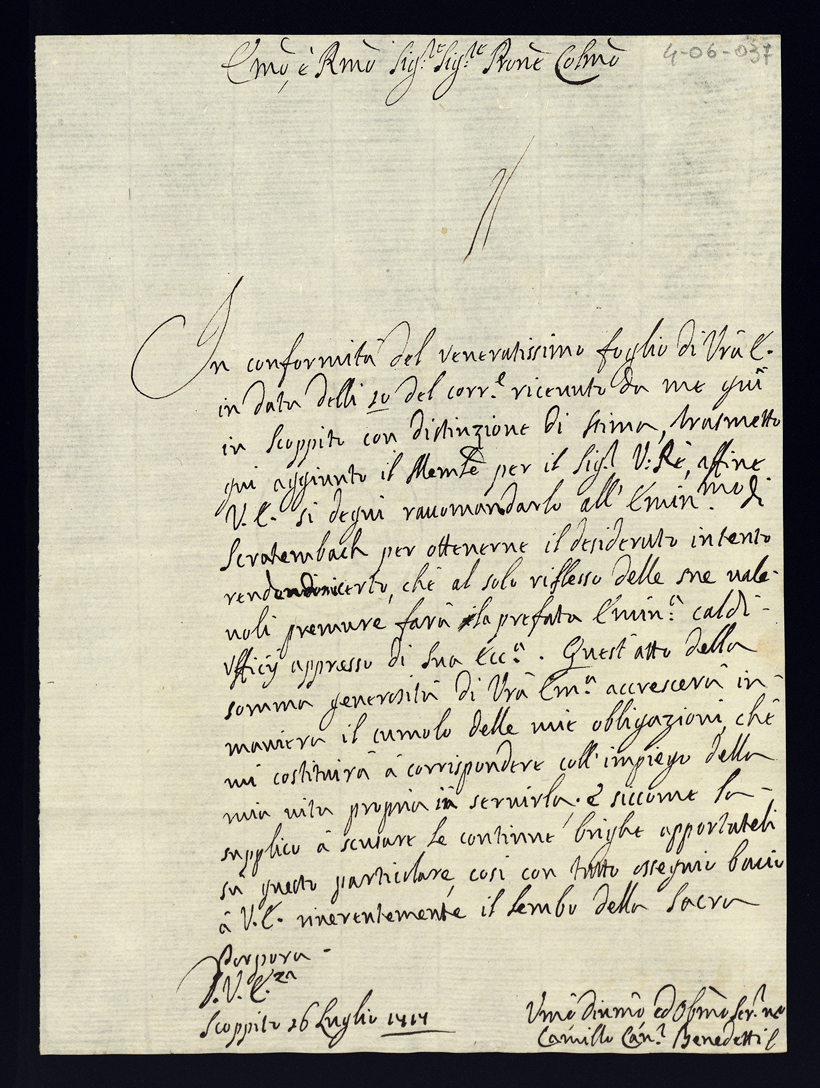 Emô, è Rmô Sig.re Sig.re Prone Colmô
4-06-037
In conformità del veneratissimo foglio di Vrâ E.
in data delli 20 del corr.e ricevuto da me quì
in Scoppito con distinzione di stima, trasmetto
qui aggiunto il Memle per il Sig.r V. Rè, affine
V. E. si degni raccomandarlo all' Emin.mo di
Scratembach per ottenerne il desiderato intento
rendendomi certo, chè al solo riflesso delle sue vale-
voli premure farà la prefata Emin.a caldi-
Ufficij appresso di Sua Ecc.a . Quest' atto della
somma generosità di Vrâ Em.a accrescerà in-
maniera il cumolo delle mie obligazioni, chè
mi costituirà à corrispondere coll' impiego della
mia vita propria in servirla, e siccome la-
supplico à scusare le continue brighe apportateli
sù questo particolare, così con tutto ossequio bacio
à V. E. riverentemente il lembo della Sacra
Porpora -
D. V. E.za
Scoppito 26 Luglio 1719
Umô Divmô ed Obmô Ser.re
Camillo Can.co Benedetti